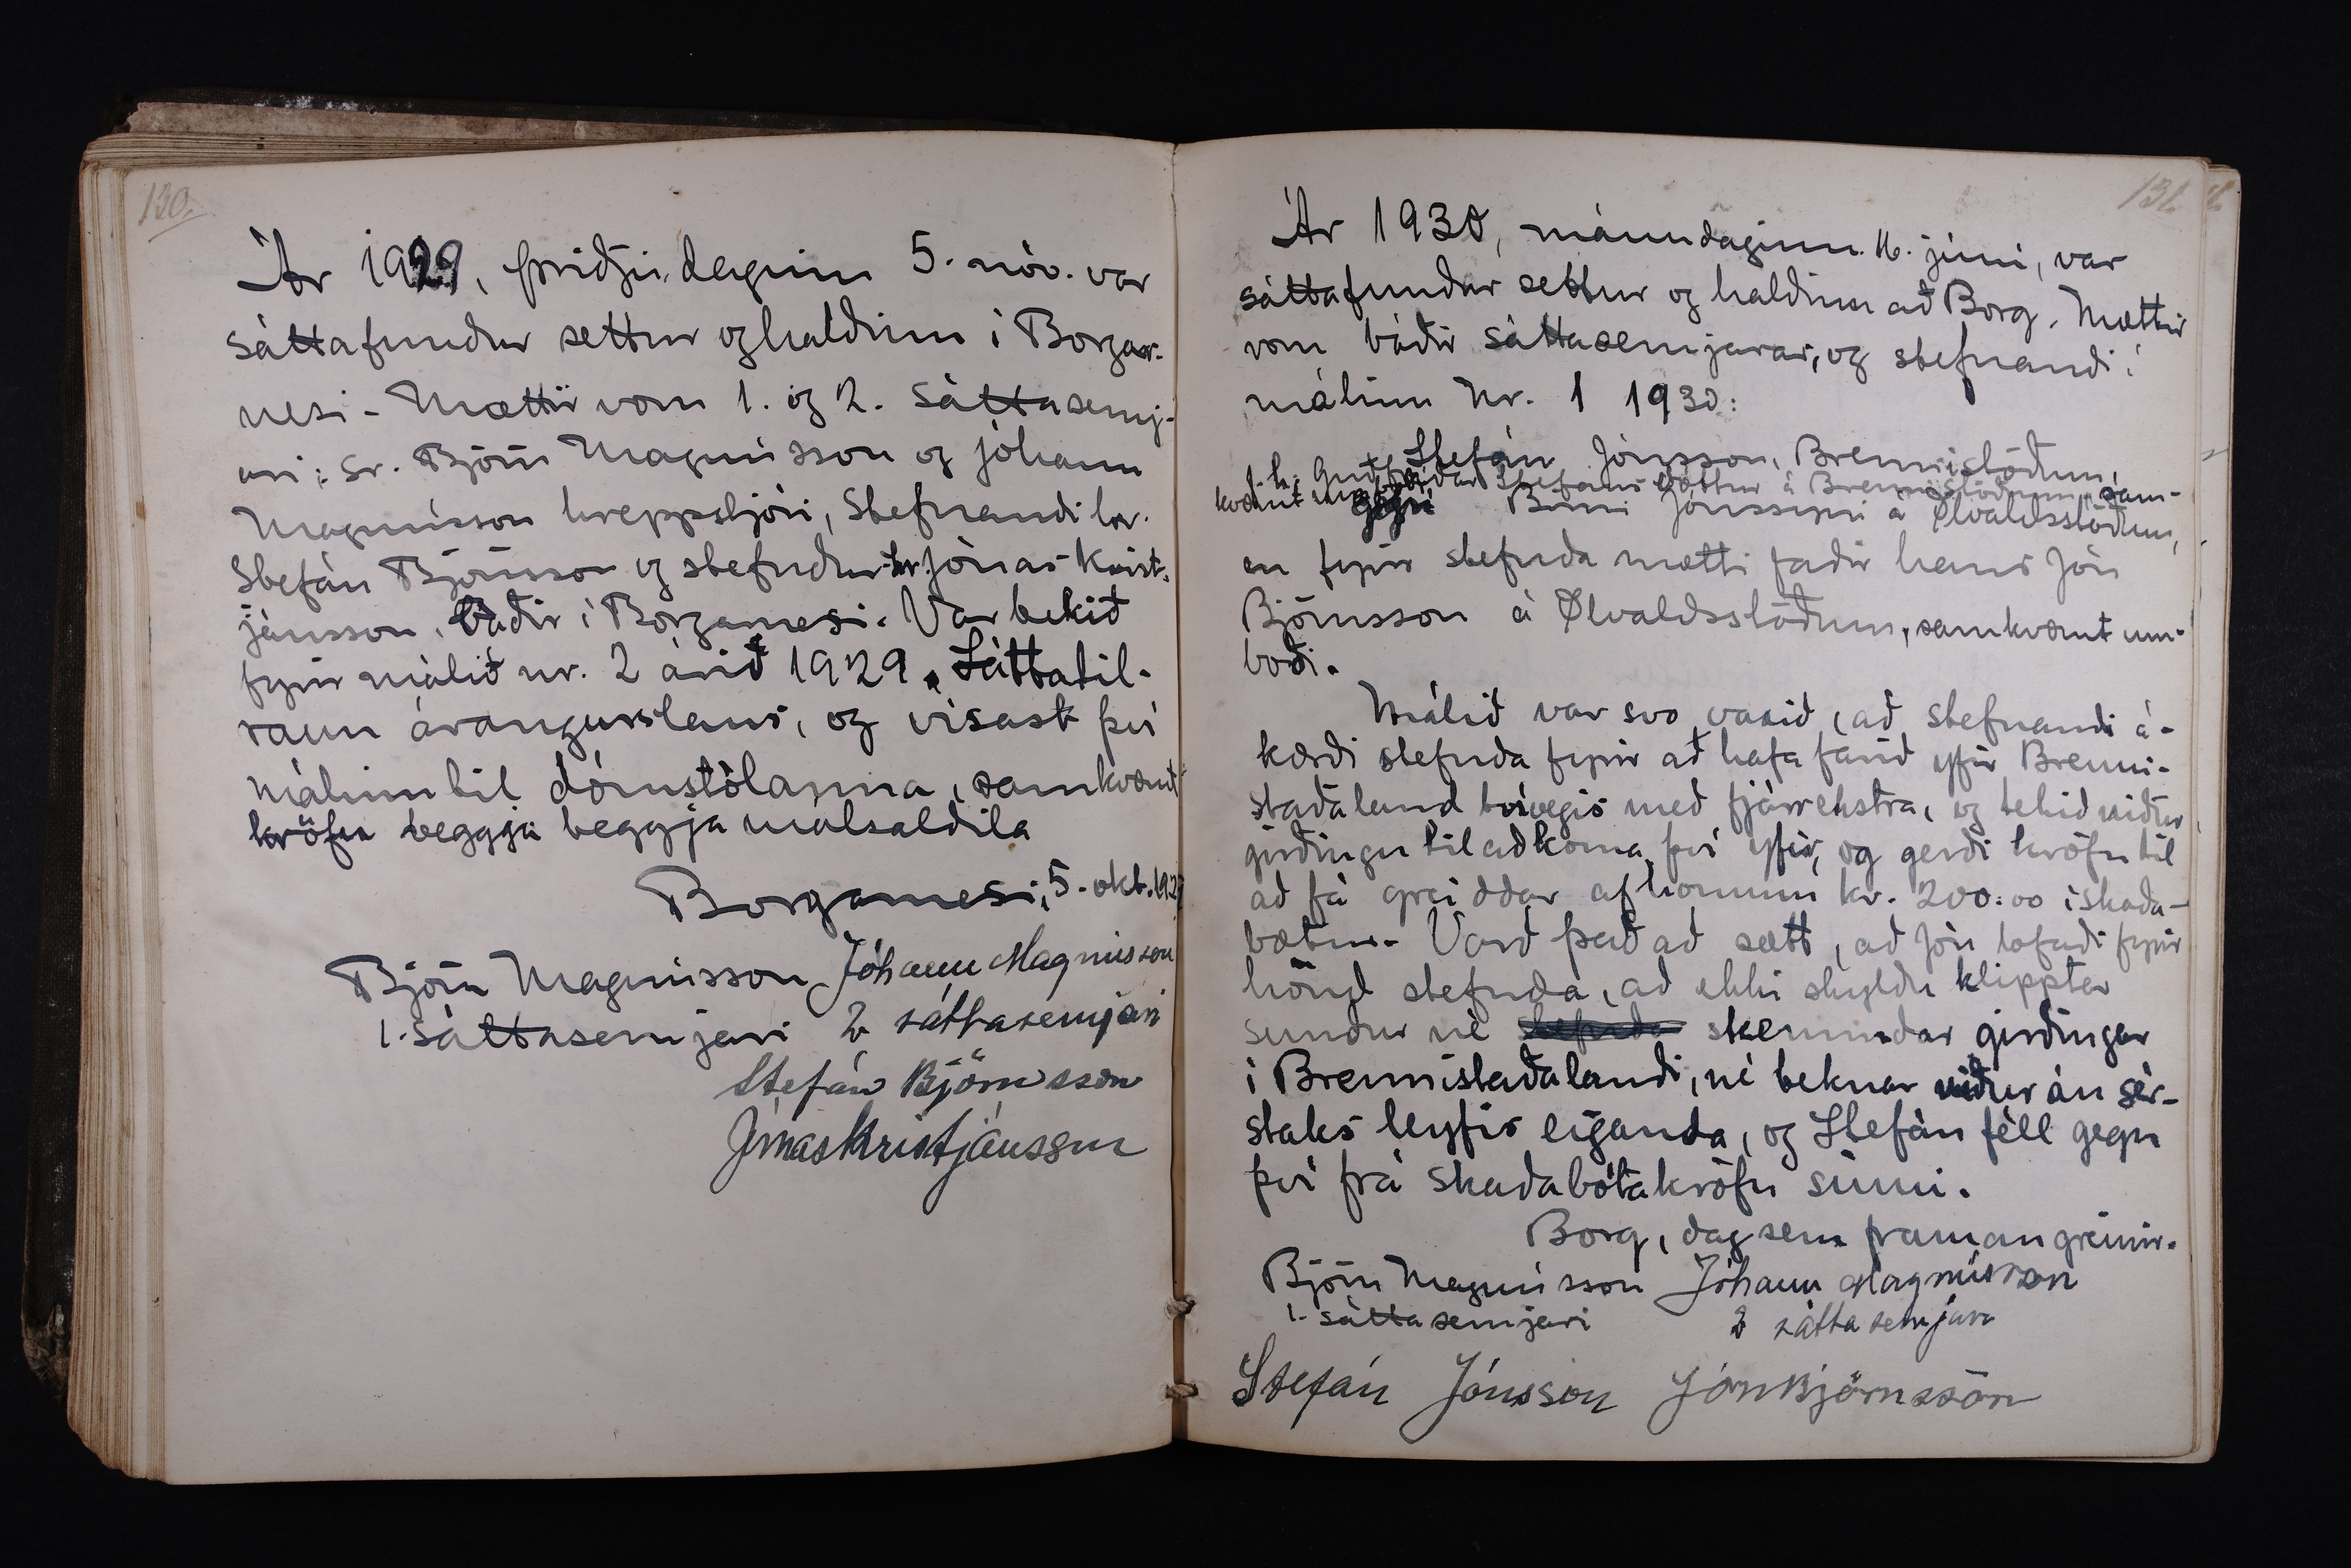 130.
Ár 1929, þriðjudaginn 5. nóv. var
sáttafundur settur og haldinn í Borgar-
nesi - Mættir voru 1. og 2. sáttasemj-
ari: sr. Björn Magnússon og Jóhann
Magnússon hreppstjóri, Stefnandi hr.
Stefán Björnsson og stefndur hr. Jónas Krist-
jánsson, báðir í Borgarnesi. Var tekið
fyrir málið nr. 2 árið 1929. Sáttatil-
raun árangurslaus, og vísast því
málinu til dómstólanna, samkvæmt
kröfu beggja beggja málsaðila
Borgarnesi, 5. okt. 1929
Björn Magnússon Jóhann Magnússon
1. sáttasemjari 2 sáttasemjari
Stefán Björnsson
Jónas Kristjánsson
131.
Ár 1930, mánudaginn 16. júní, var
sáttafundur settur og haldinn að Borg. Mættir
voru báðir sáttasemjarar, og stefnandi í
málinu Nr. 1 1930:
Stefán Jónsson, Brennistöðum,
f. h. Guðfríðar Stefánsdóttur á Brennistöðum, sam-
kvæmt umboði
gegn Birni Jónssyni á Ölvaldsstöðum,
en fyrir stefnda mætti faðir hans Jón
Björnsson á Ölvaldsstöðum, samkvæmt um-
boði.
Málið var svo vaxið, að stefnandi á-
kærði stefnda fyrir að hafa farið yfir Brenni-
staðaland tvívegis með fjárrekstra, og tekið niður
girðingu til að koma því yfir, og gerði kröfu til
að fá greiddar af honum kr. 200:00 í skaða-
bætur. Varð það að sætt, að Jón lofaði fyrir
hönd stefnda, að ekki skyldu klipptar
sundur né skemmdar girðingar
í Brennistaðalandi, né teknar niður án sér-
staks leyfis eiganda, og Stefán féll gegn
því frá skaðabótakröfu sinni.
Borg, dag sem framan greinir.
Björn Magnússon Jóhann Magnússon
1. sáttasemjari 2 sáttasemjari
Stefán Jónsson Jón Björnsson